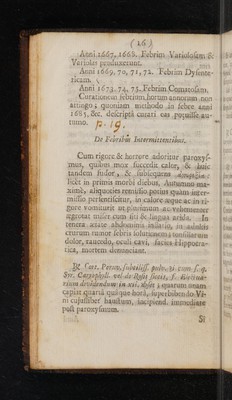 (16)
Anni 1667, 1668. Febrim Variolosam &
Variolas produxerunt.
Anni 1669, 70, 71, 72. Febrim Dysente-
ricam.
Anni 1673, 74, 75. Febrim Comatosam.
Curationem febrium, horum annorum non
attingo; quoniam methodo in febre anni
1685, &c. descriptâ curari eas potuisse au-
tumo.
p. 19.
De Febribus Intermittentibus.
Cum rigore & horrore adoritur paroxys-
mus, quibus mox succedit calor, & huic
tandem sudor, & subsequens
licèt in primis morbi diebus, Autumno ma-
ximè, aliquoties remissio potius quàm inter-
missio persentiscitur, in calore æque ac in ri-
gore vomiturit ut plurimum ac vehementer
ægrotat miser cum siti & lingua arida. In
tenera ætate abdominis inflatio, in adultis
crurum tumor febris solutionem; tonsillarum
dolor, raucedo, oculi cavi, facies Hippocra-
tica, mortem denunciant.
℞ Cort. Peruv. subtiliss. pulv. ℥i cum s. q.
Syr. Caryophyll. vel de Rosis siccis, f. Electua-
rium dividendum in xii. doses; quarum unam
capiat quartâ quâque horâ, superbibendo Vi-
ni cujuslibet haustum, incipiend. immediatè
post paroxysmum.
Si